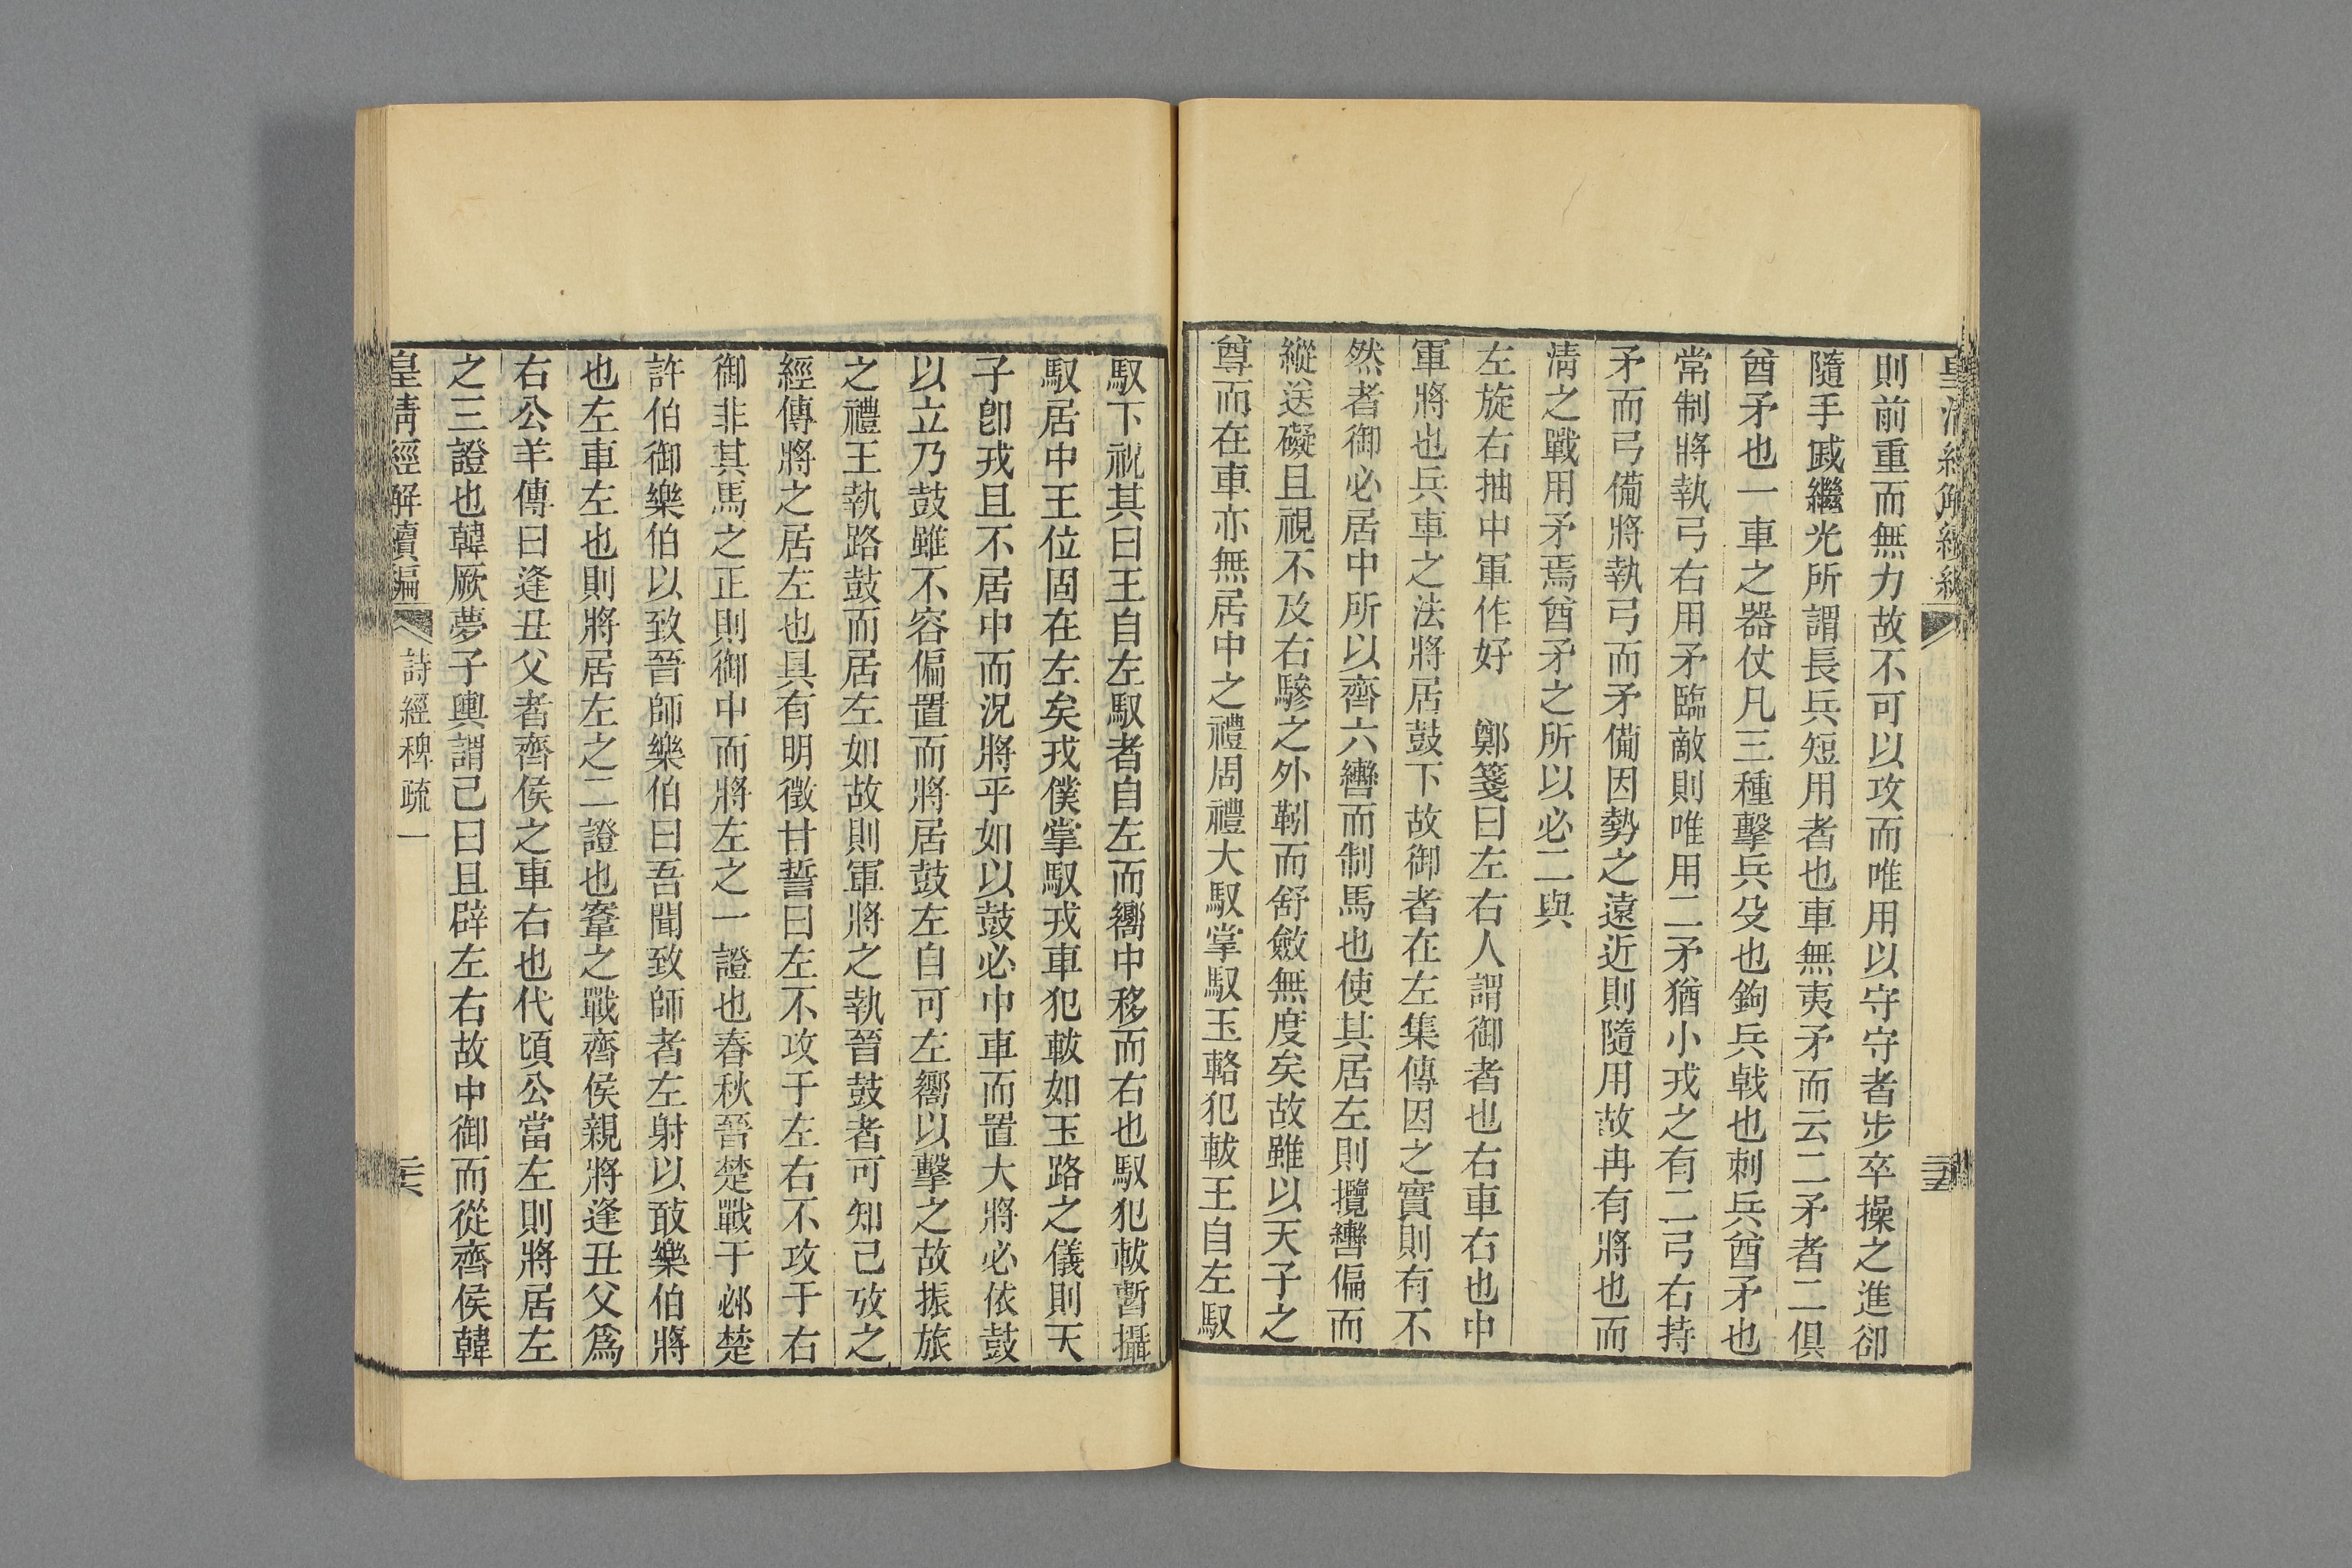 則前重而無力故不可以攻而唯用以守守者步卒操之進卻
隨手戚繼光所謂長兵短用者也車無夷矛而云二矛者二俱
酋矛也一車之器仗凡三種擊兵殳也鉤兵戟也刺兵酋矛也
常制將執弓右用矛臨敵則唯用二矛猶小戎之有二弓右持
矛而弓備將執弓而矛備因勢之遠近則隨用故冉有將也而
淸之戰用矛焉酋矛之所以必二與
左旋右抽中軍作好　鄭箋曰左右人謂御者也右車右也中
軍將也兵車之法將居鼓下故御者在左集傳因之實則有不
然者御必居中所以齊六轡而制馬也使其居左則攬轡偏而
縱送礙且視不及右驂之外靷而舒斂無度矣故雖以天子之
尊而在車亦無居中之禮周禮大馭掌馭玉輅犯軷王自左馭
馭下祝其曰王自左馭者自左而嚮中移而右也馭犯軷暫攝
馭居中王位固在左矣戎僕掌馭戎車犯軷如玉路之儀則天
子卽戎且不居中而況將乎如以鼓必中車而置大將必依鼓
以立乃鼓雖不容偏置而將居鼓左自可左嚮以擊之故振旅
之禮王執路鼓而居左如故則軍將之執晉鼓者可知已攷之
經傳將之居左也具有明徵甘誓曰左不攻于左右不攻于右
御非其馬之正則御中而將左之一證也春秋晉楚戰于邲楚
許伯御樂伯以致晉師樂伯曰吾聞致師者左射以菆樂伯將
也左車左也則將居左之二證也鞌之戰齊侯親將逢丑父爲
右公羊傳曰逢丑父者齊侯之車右也代頃公當左則將居左
之三證也韓厥夢子輿謂己曰且辟左右故中御而從齊侯韓
皇淸經解續編
詩經稗疏一